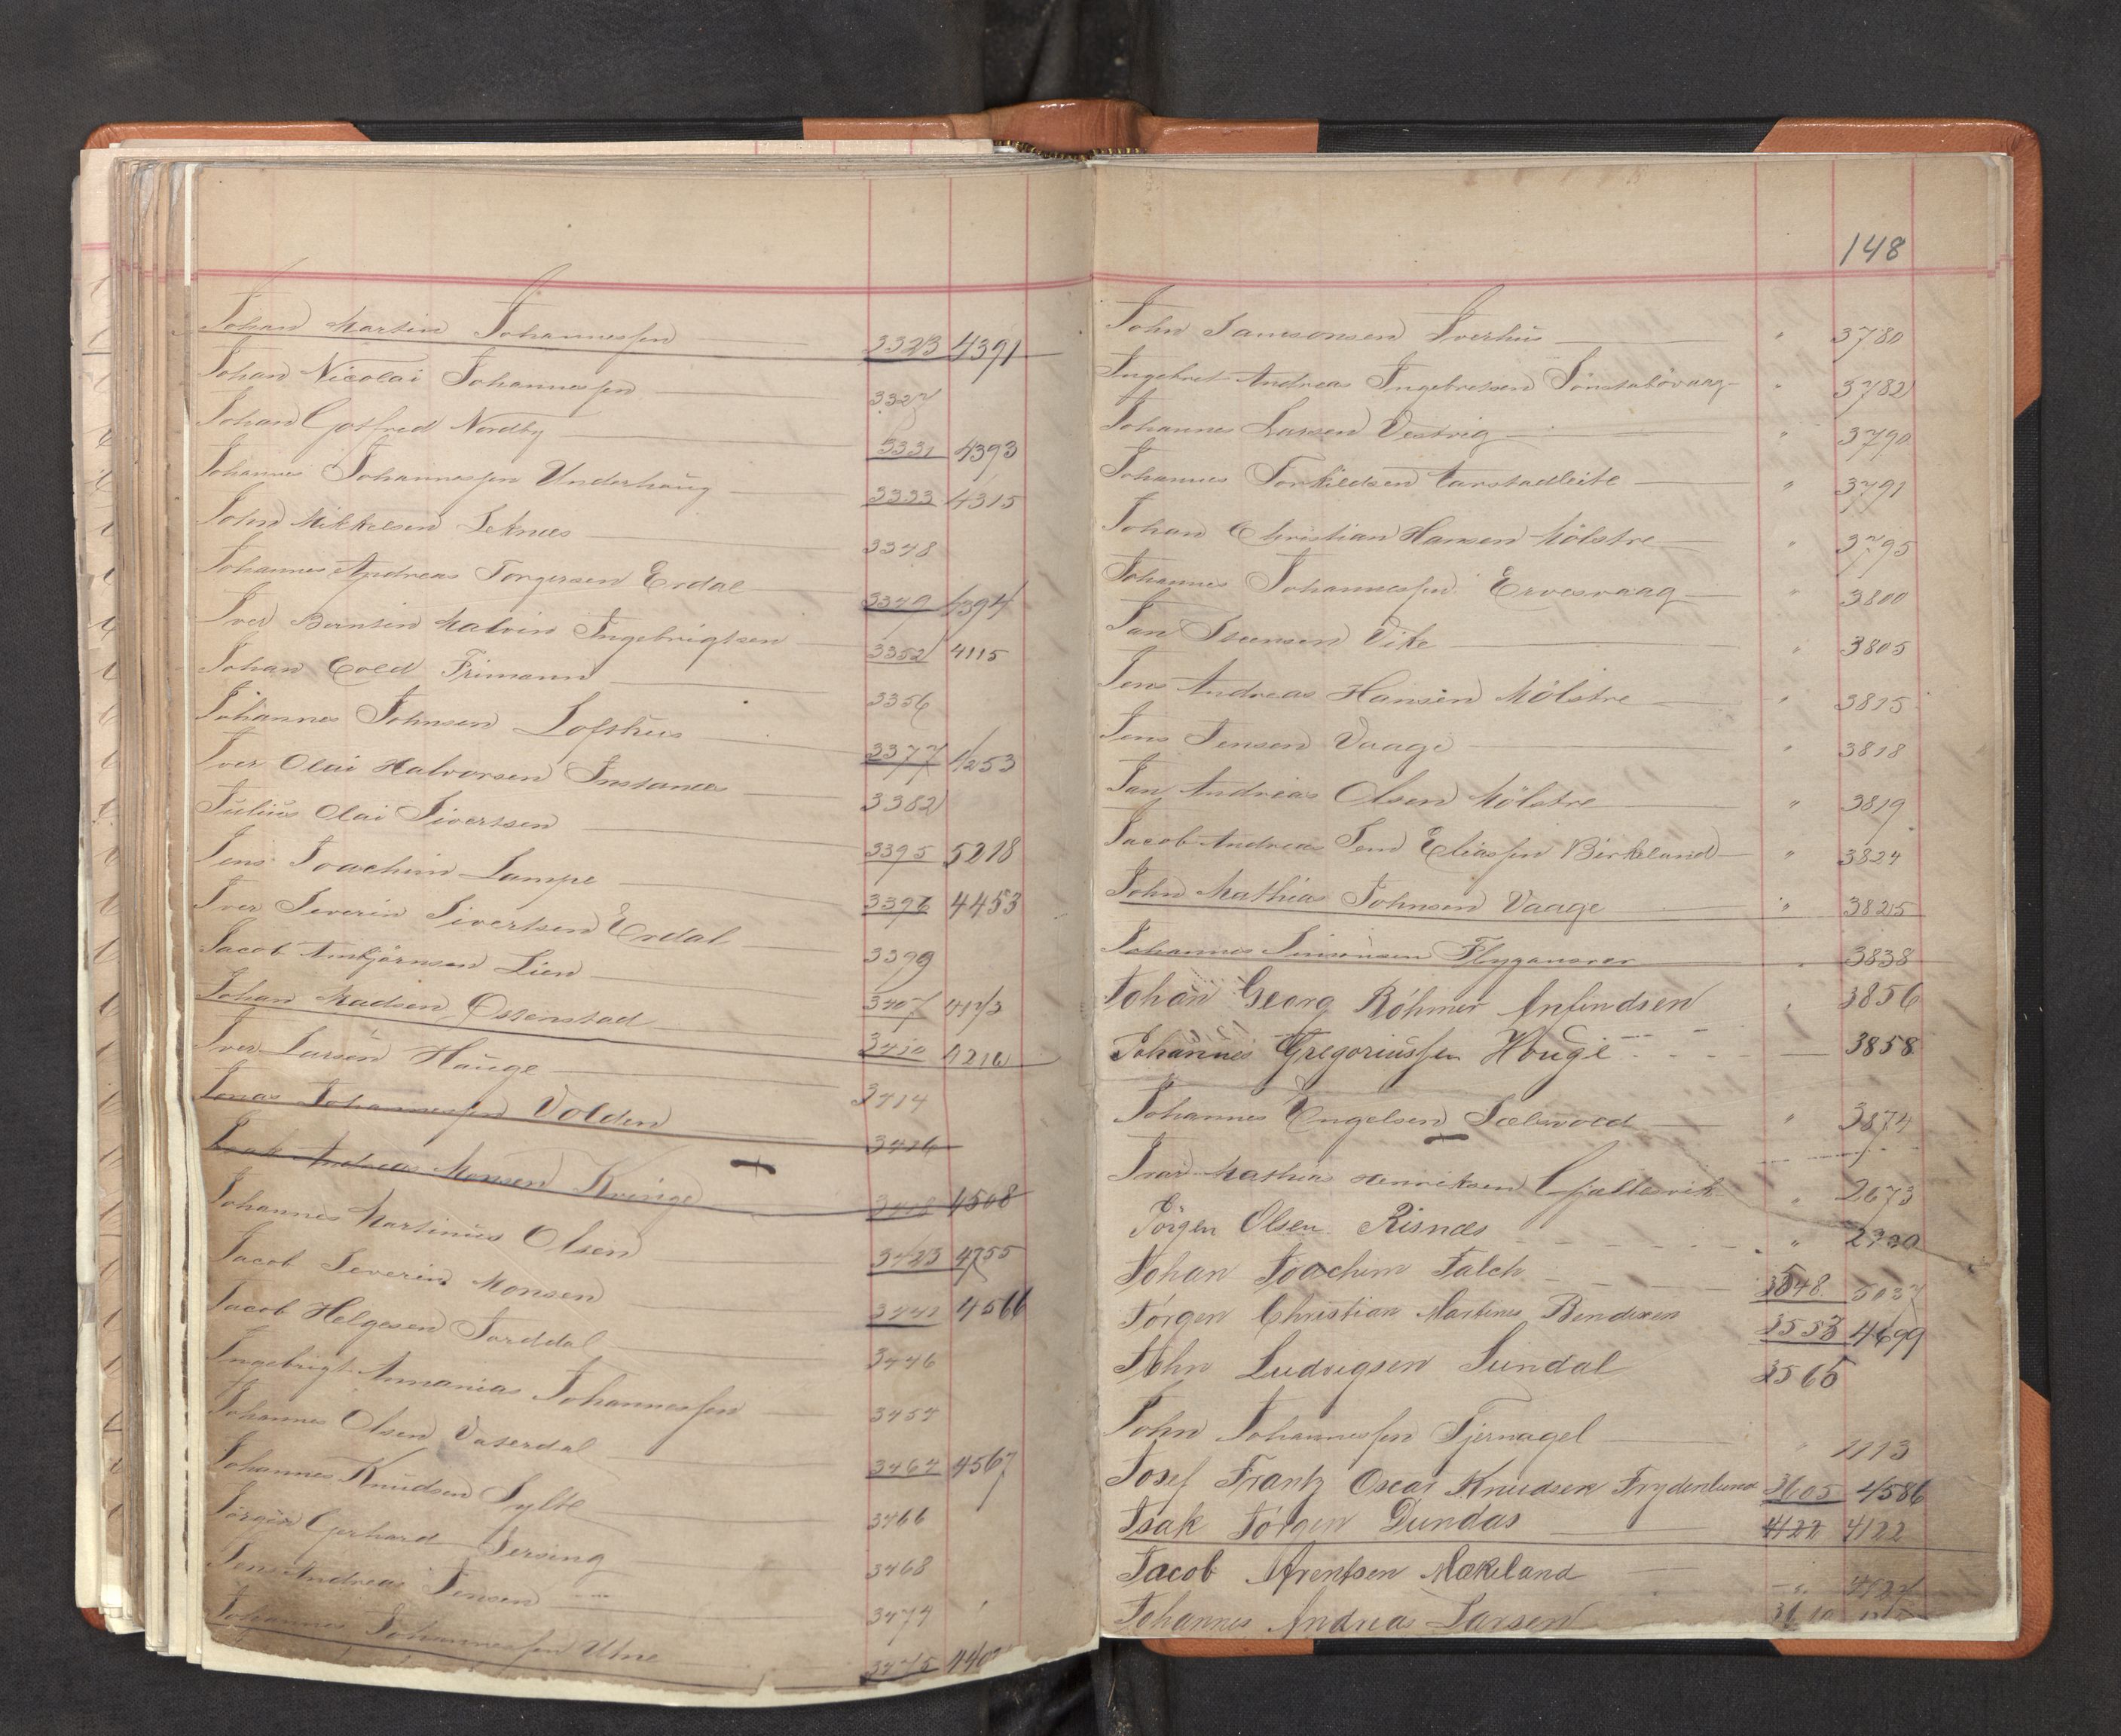 Johan Martin Johannessen 3323 4391
Johan Nicolai Johannessen 3327
Johan Gotfred Nordby 3331 4393
Johannes Johannessen Underhaug 3333 4315
John Mikkelsen Leknæs 3348
Johannes Andreas Torgersen Erdal 3349 4394
Iver Berntin Malvin Ingebrigtsen 3352 4115
Johan Cold Frimann 3356
Johannes Johnsen Lofthus 3377 4253
Iver Olai Halvorsen Instanæs 3382
Julius Olai Sivertsen 3395 5218
Jens Joachim Lampe 3396 4453
Iver Severin Sivertsen Erdal 3399
Jacob Lien 3407
Johan Madsen Ossenstad 3410 4216
Iver Larsen Hauge 3414
Jonas Johannessen Volden 3416
Isak Andreas Monsen Kvinge 3418 4508
Johannes Martinus Olsen 3423 4755
Jacob Severin Monsen 3442 4566
Jacob Helgesen 3446
Ingebrigt Annanias Johannessen 3454
Johannes Olsen Vaserdal 3464 4567
Johannes Knudsen Sylte 3466
Jörgen Gerhard Gersing 3468
Jens Andreas Jensen 3474
Johannes Johannessen Utne 3475
148
John Samsonsen Iverhus " 3780
Ingebret Andreas Ingebretsen " 3782
Johannes Larsen Vestvig " 3790
Johannes Torkildsen " 3791
Johan Christian Hansen Mölstre " 3795
Johannes Johannessen Ervesvaag " 3800
Jan Vike " 3805
Jens Andreas Hansen Mölstre " 3815
Jens Jensen Vaage " 3818
Jan Andreas Olsen Mölstre " 3819
Jacob Andreas Eliassen Birkeland " 3824
John Mathias Johnsen Vaage " 3825
Johannes Simonsen 3838
Johan Georg Böhmer Anfindsen 3856
Johannes Gregoriussen Houge 3858
Johannes Engelsen " 3874
Ivar Mathias Henriksen " 2673
Jörgen Olsen Risnæs "
Johan Joachim Falch 3548 5037
Jörgen Christian Martinus Bendixen 3553 4699
John Ludvigsen Sundal 3565
John Johannessen Tjernagel " 1113
Josef Frantz Oscar Knudsen Frydenlund 3605 4586
Isak Jörgen Dundas 4122 4122
Jacob Arentsen Mækeland
Johannes Andreas Larsen